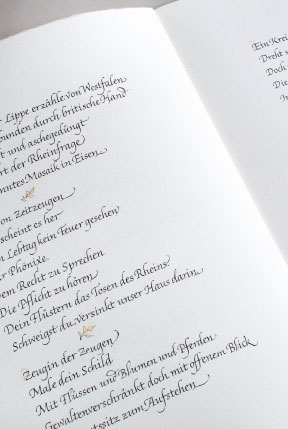 Lippe erzähle von Westfalen
bunden durch britische Hand
t und aschegedüngt
rt der Rheinfrage
nntes Mosaik in Eisen
on Zeitzeugen
scheint es her
n Lebtag kein Feuer gesehen
r Phönixe
em Recht zu Sprechen
Die Pflicht zu hören
Dein Flüstern das Tosen des Rheins
Schweigst du, versinkt unser Haus darin
Zeugin der Zeugen
Male dein Schild
Mit Flüssen und Blumen und Pferden
Gewaltenverschränkt doch mit offenem Blick
tssitz zum Aufstehen
Ein Krei
Dreht s
Doch
Die